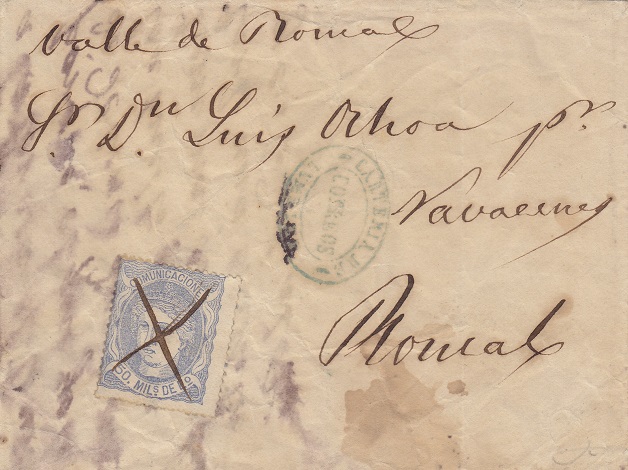 Valle de Roncal
Sr Dn Luis Ochoa pr
Navascues
Roncal
CARTERIA DE
CORREOS
COMUNICACIONES
50. MILS DE Eo